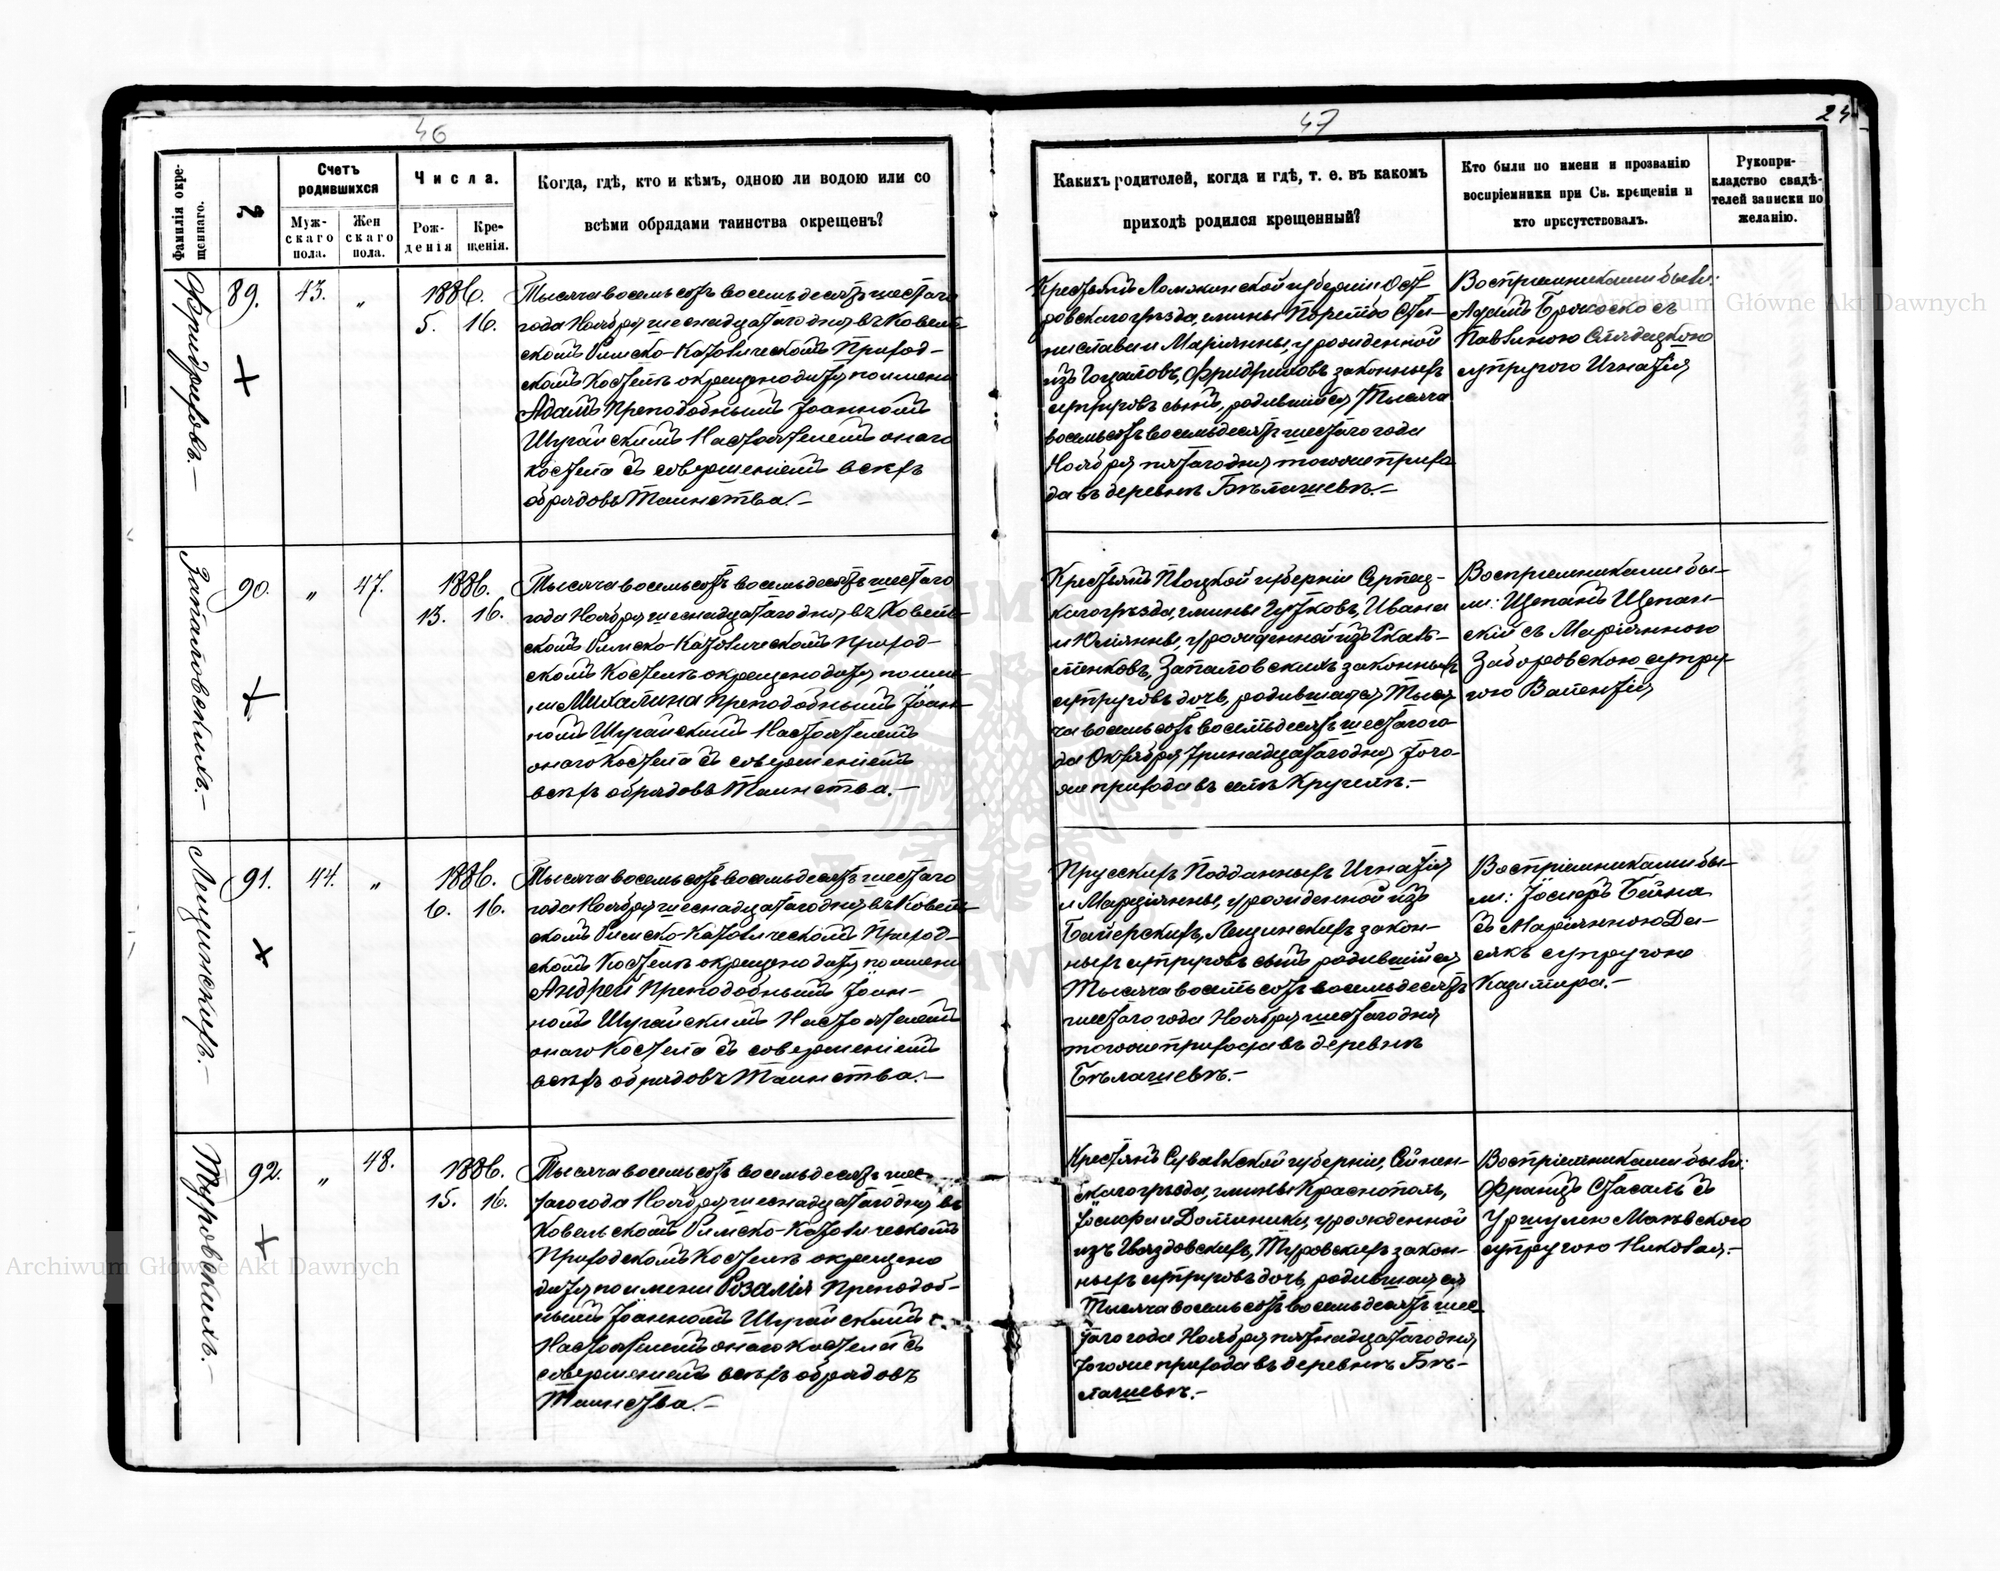 46
47
24
Фамилія окре-
щеннаго.
№
Счетъ
родившихся
Муж-
скаго
пола.
Жен
скаго
пола.
Числа.
Рож-
денія
Кре-
щенія.
Когда, гдѣ, кто и кѣмъ, одною ли водою или со
всѣми обрядами таинства окрещенъ?
Какихъ родителей, когда и гдѣ, т. е. въ какомъ
приходѣ родился крещенный?
Кто были по имени и прозванію
воспріемники при Св. крещеніи и
кто присутствовалъ.
Рукопри-
кладство свидѣ-
телей записки по
желанію.
Фридриховъ.—
89.
43.
„
1886.
5. 16.
Тысяча восемьсотъ восемьдесятъ шестаго
года Ноября шеснадцатаго дня въ Ковель-
скомъ Римско-Католическомъ Приход-
скомъ Костелѣ окрещено дитя по имени
Адамъ Преподобнымъ Іоанномъ
Шугайскимъ Настоятелемъ онаго
костела съ совершеніемъ всѣхъ
обрядовъ Таинства.—
Крестьянъ Ломжинской губерніи Ост-
ровскаго уѣзда, гмины Порембо Ста-
ниславаи Маріянны, урожденной
изъ Гоцаловъ, Фридриховъ законныхъ
супруговъ сынъ, родившійся Тысяча
восемьсотъ восемьдесятъ шестаго года
Ноября пятаго дня тогоже прихо-
да въ деревнѣ Бѣлашевѣ.—
Воспріемниками были:
Адамъ Брожоско съ
Павлиною
супругою Игнатія
Запаловскихъ.—
90.
„
47.
1886.
13. 16.
Тысяча восемьсотъ восемьдесятъ шестаго
года Ноября шеснадцатаго дня въ Ковель-
скомъ Римско-Католическомъ Приход-
скомъ Костелѣ окрещено дитя по име-
ни Михалина Преподобнымъ Іоан-
номъ Шугайскимъ Настоятелемъ
онаго Костела съ совершеніемъ
всѣхъ обрядовъ Таинства.—
Крестьянъ Плоцкой губерніи Серпец-
каго уѣзда, гмины Гутковъ, Ивана
и Юліянны, урожденной изъ
Запаловскихъ законныхъ
супруговъ дочь, родившаяся Тыся-
ча восемьсотъ восемьдесятъ шестаго го-
да Октября тринадцатаго дня того-
же прихода въ селѣ Кручемъ.—
Воспріемниками бы-
ли: Щепанъ Щепан-
скій съ Маріянною
Заборовскою супру-
гою Валентія
Лещинскихъ.—
91.
44.
„
1886.
6. 16.
Тысяча восемьсотъ восемьдесятъ шестаго
года Ноября шеснадцатаго дня въ Ковель-
скомъ Римско-Католическомъ Приход-
скомъ Костелѣ окрещено дитя по имени
Андрей Преподобнымъ Іоан-
номъ Шугайскимъ Настоятелемъ
онаго Костела съ совершеніемъ
всѣхъ обрядовъ Таинства.—
Прусскихъ Подданныхъ Игнатія
и Марціянны, урожденной изъ
Байерскихъ, Лещинскихъ закон-
ныхъ супруговъ сынъ родившійся
Тысяча восемьсотъ восемьдесятъ
шестаго года Ноября шестаго дня
тогоже прихода въ деревнѣ
Бѣлашевѣ.—
Воспріемниками бы-
ли: Іосифъ Бейна
съ Маріянною Да-
сякъ супругою
Казимира.—
Туровскихъ.—
92.
„
48.
1886.
15. 16.
Тысяча восемьсотъ восемьдесятъ шес-
таго года Ноября шеснадцатаго дня въ
Ковельскомъ Римско-Католическомъ
Приходскомъ Костелѣ окрещено
дитя по имени Розалія Преподоб-
нымъ Іоанномъ Шугайскимъ
Настоятелемъ онаго Костела съ
совершеніемъ всѣхъ обрядовъ
Таинства.—
Крестьянъ Сувалкской губерніи, Сейнен-
скаго уѣзда, гмины Краснополь,
Іосифа и Доминики, урожденной
изъ Гвяздовскихъ, Туровскихъ закон-
ныхъ супруговъ дочь, родившаяся
Тысяча восемьсотъ восемьдесятъ шес-
таго года Ноября пятнадцатаго дня
тогоже прихода въ деревнѣ Бѣ-
лашевѣ.—
Воспріемниками были:
Францъ Стасалъ съ
Уршулею Маевскою
супругою Николая.—
Archiwum Główne Akt Dawnych
Archiwum Główne Akt Dawnych